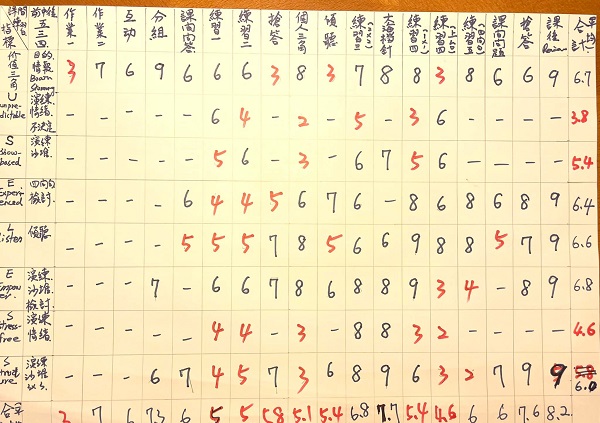 作業一 作業二 互動 分組 課間問答 練習一 練習二 搶答 個人三角 傾聽 練習三 大海撈針 練習四 練習四 練習五 課間問題 搶答 課後 合計
指標
價值三角 目的 情報 3 7 6 9 6 6 6 3 8 3 7 8 8 3 8 6 6 9 6.7
Unpredictable 演練 情緒 不決定 - - - - - 6 4 - 2 - 5 - 3 6 - - - - 3.8
S Show-based 演練 沙堆 - - - - - 5 6 - 3 - 6 7 5 6 - - - - 5.4
E Experienced 四向句 檢討 - - - - 6 4 4 5 6 7 6 - 8 6 8 6 8 9 6.4
Listen 傾聽 - - - - 5 5 5 7 8 5 6 6 9 8 8 5 7 9 6.6
E Empower 演練 沙堆 檢討 - - - 7 - 6 6 7 8 6 8 8 9 3 4 - 8 9 6.8
S Stress-free 演練 情緒 - - - - - 4 4 - 3 - 8 8 3 2 - - - - 4.6
S Structure 演練 沙堆 - - - 6 7 4 5 7 3 6 8 9 6 3 2 7 9 9 6.0
合平 3 7 6 7.3 6 5 5 5.8 5.1 5.4 6.8 7.7 5.4 4.6 6 6 7.6 8.2